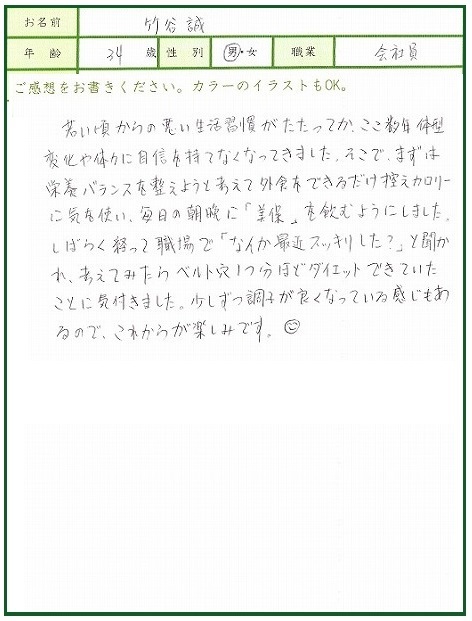 お名前 竹谷 誠
年齢 34 歳 性別 男・女 職業 会社員
ご感想をお書きください。カラーのイラストもOK。
若い頃からの悪い生活習慣がたたってか、ここ数年体型
変化や体力に自信を持てなくなってきました。そこで、まずは
栄養バランスを整えようとあえて外食をできるだけ控えカロリー
に気を使い、毎日の朝晩に「美保」を飲むようにしました。
しばらく経って職場で「なんか最近スッキリした?」と聞か
れ、あえてみたらベルト穴1つ分ほどダイエットできていた
ことに気付きました。少しずつ調子が良くなっている感じもあ
るので、これからが楽しみです。